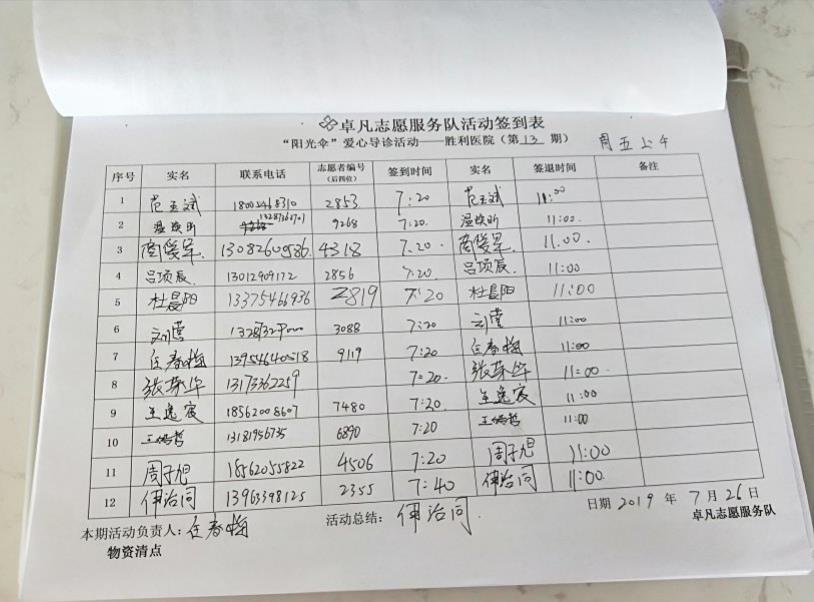 卓凡志愿服务队活动签到表
“阳光伞”爱心导诊活动——胜利医院（第13期） 周五上午
序号 实名 联系电话 志愿者编号（后四位） 签到时间 实名 签退时间 备注
1 范玉斌 18002468310 2853 7:20 范玉斌 11:00
2 温焕昕 9268 7:20. 温焕昕 11:00.
3 13082609586. 4318 7.20. 11.00.
4 吕项辰 13012909172 2856 7:20 吕项辰. 11:00
5 杜晨阳 13375466936 2819 7:20 杜晨阳 11:00
6 刘莹 3088 7:20 刘莹 11:00
7 任春梅 13954640518 9119 7:20 任春梅 11:00
8 张翠华 13173362259 7:20. 张翠华 11:00
9 王逸宸 18562008607 7480 7:20. 王逸宸 11:00
10 13181956735 6890 7:20 11:00
11 周子旭 18562055822 4506 7:20 周子旭 11:00
12 伊治同 13963398125 2355 7:40 伊治同 11:00.
日期 2019 年 7 月 26 日
本期活动负责人：任春梅 活动总结： 伊治同. 卓凡志愿服务队
物资清点